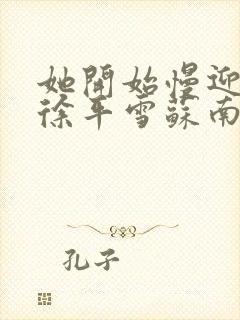 她開始慢迎
徐平雪蘇南
孔子